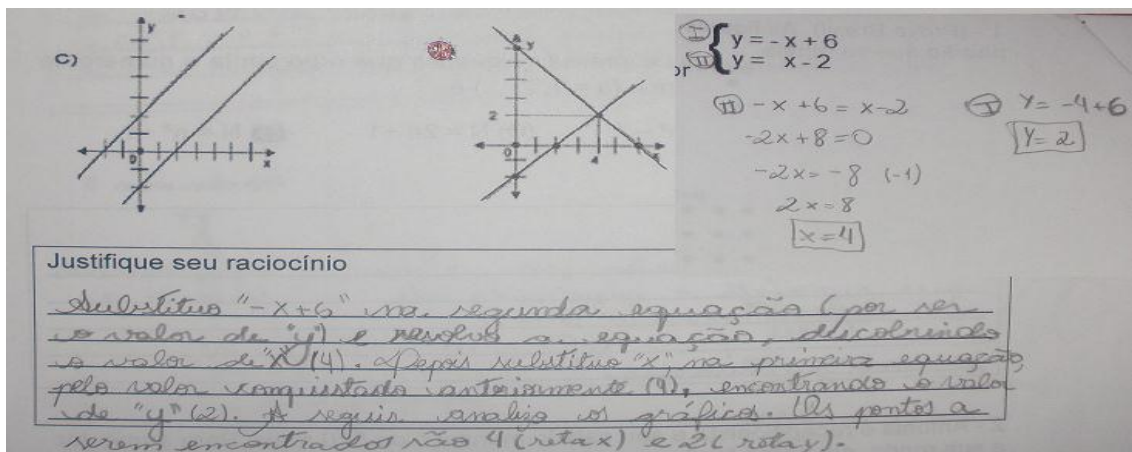 C)
y
2
0
x
A
y
2
0
4
x
or
I y = - x + 6
II y = x - 2
II - x + 6 = x - 2
-2x + 8 = 0
-2x = - 8 (-1)
2x = 8
x = 4
I y = -4 + 6
y = 2
Justifique seu raciocínio
Substituo "-x+6" na segunda equação (por ser
o valor de "y") e resolvo a equação, descobrindo
o valor de "x" (4). Depois substituo "x", na primeira equação,
pelo valor conquistado anteriormente (4), encontrando o valor
de "y" (2). A seguir analiso os gráficos. Os pontos a
serem encontrados são 4 (reta x) e 2 ( reta y).